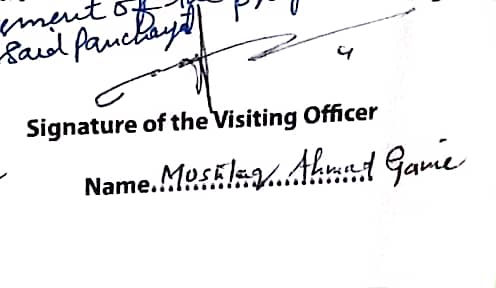 ement of the
said Panchayat
Signature of the Visiting Officer
Name. Mushtaq Ahmad Ganie